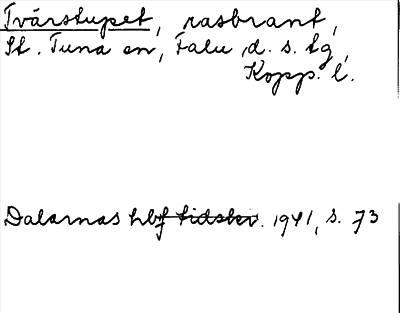 Tvärstupet, rasbrant,
St. Tuna sn, Falu d. s. tg,
Kopp. l.
Dalarnas hbf tidskr. 1941, s. 73